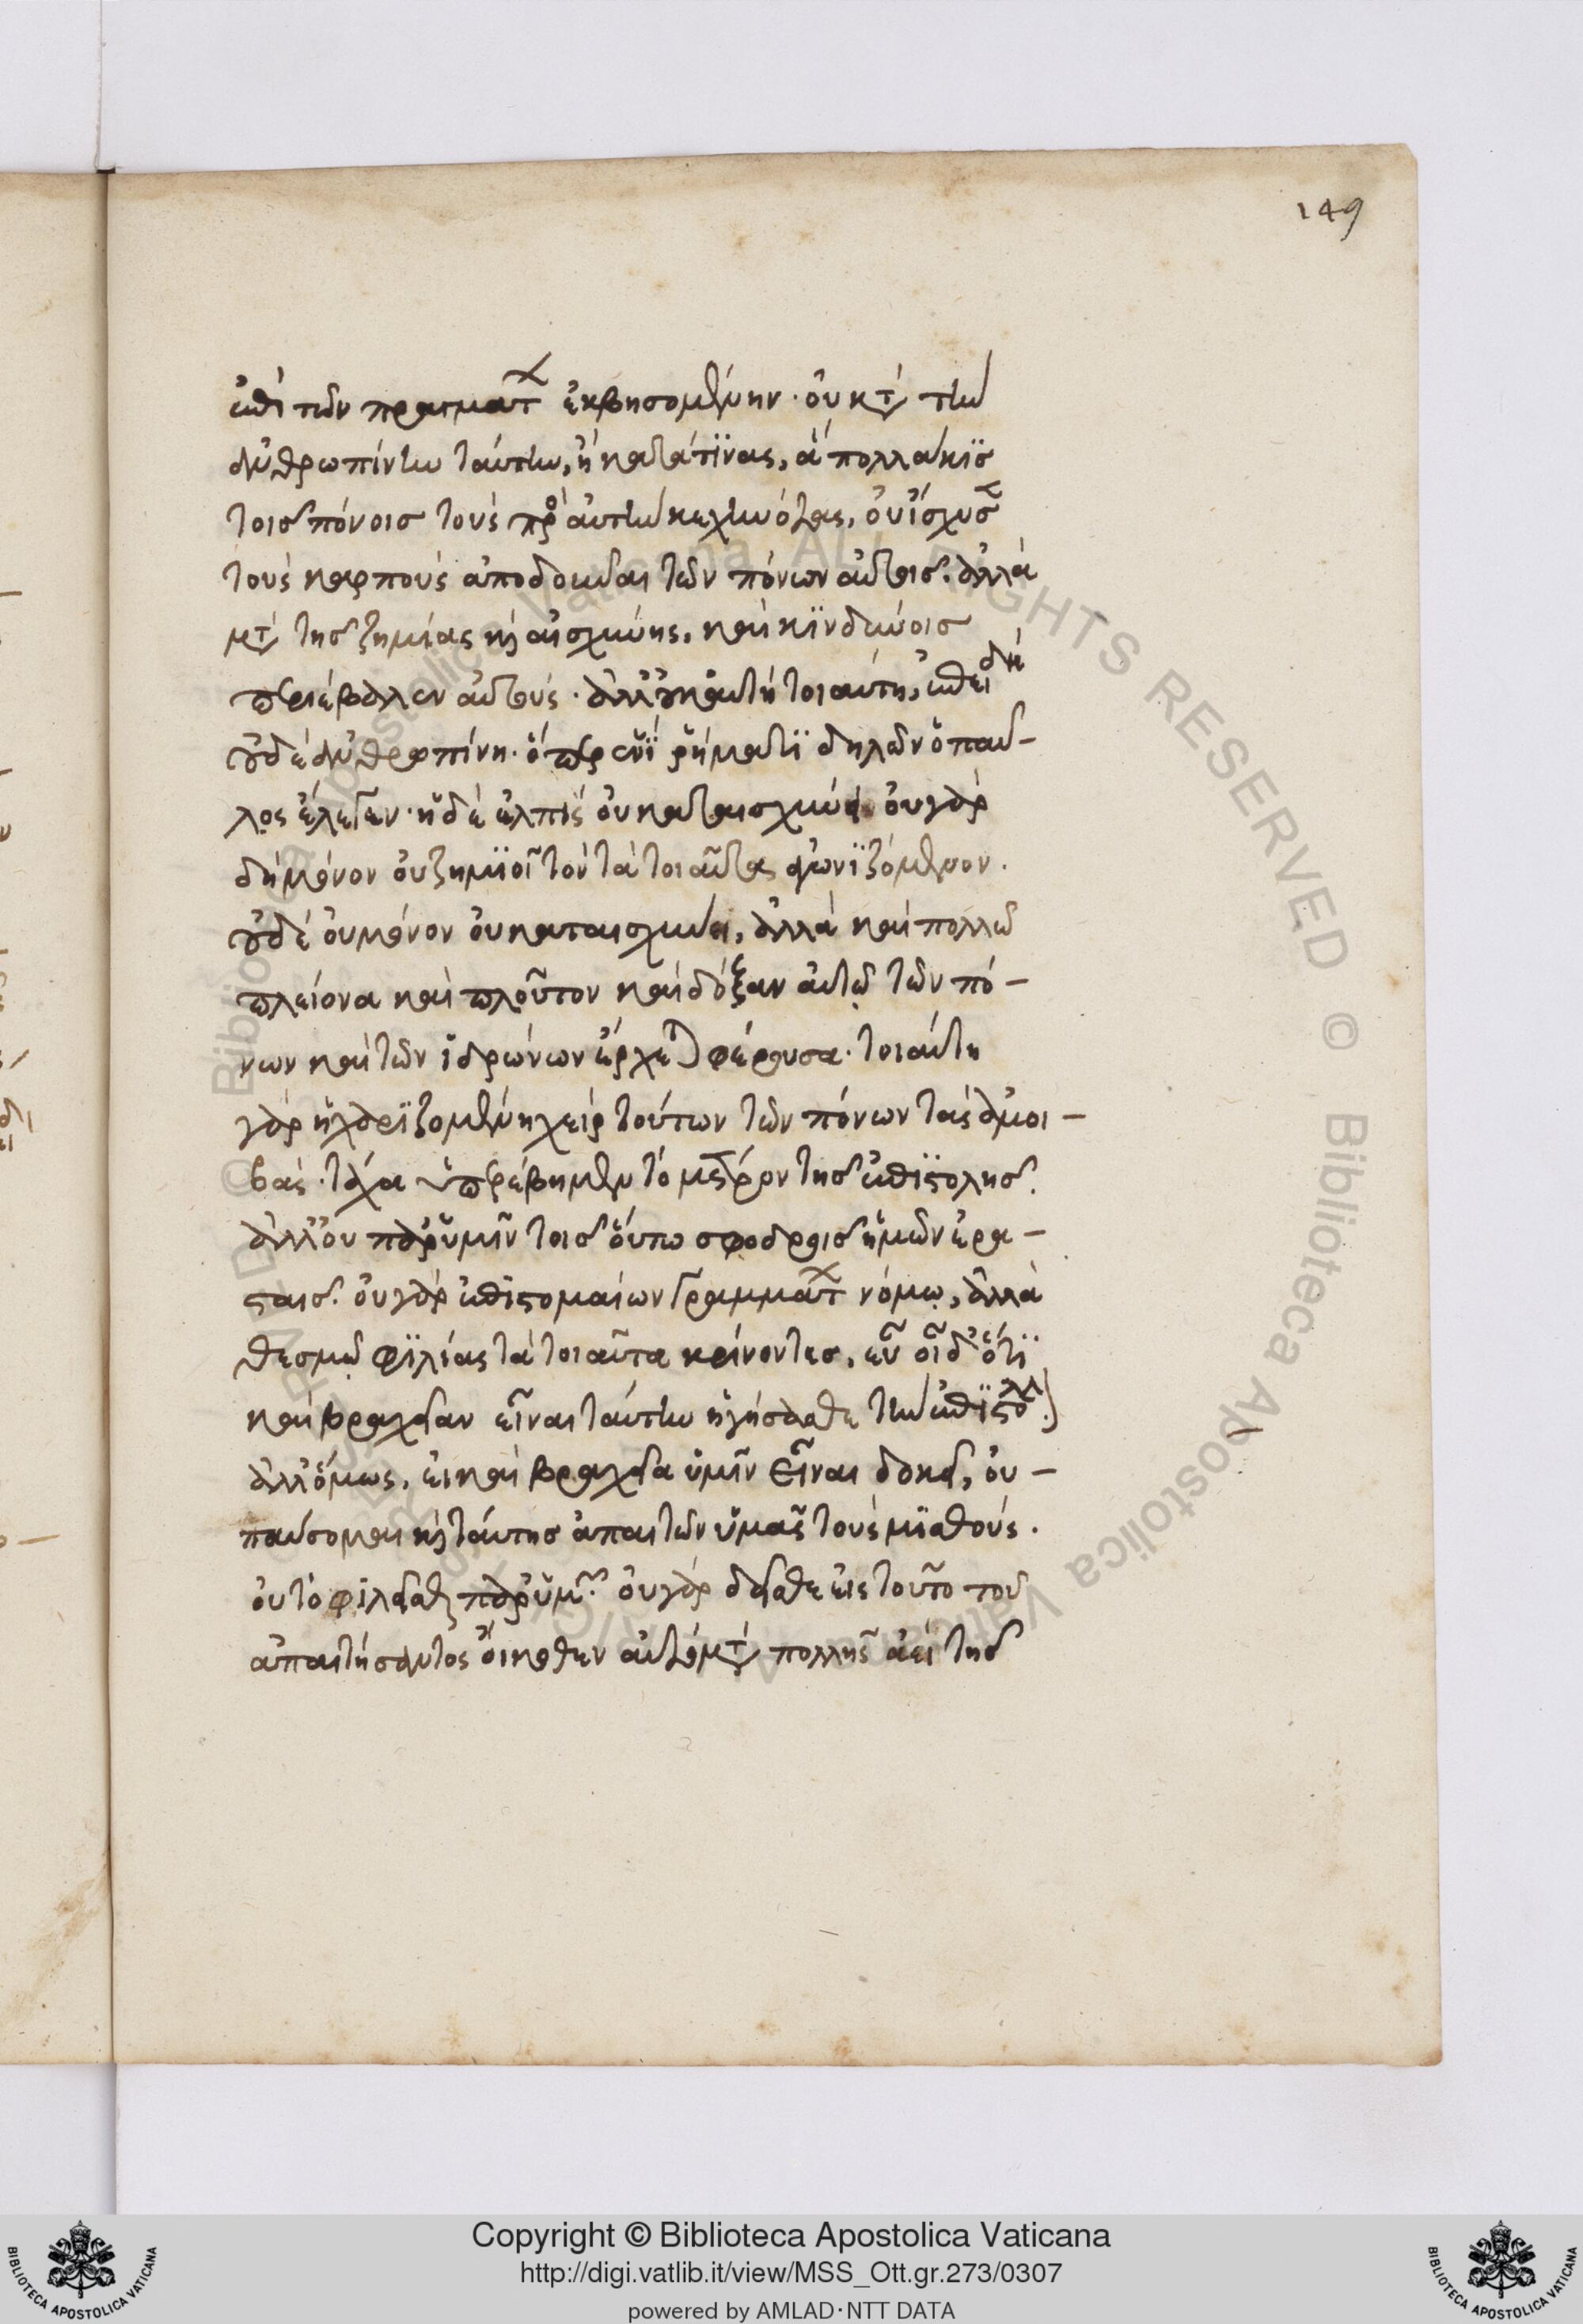 149
ἐπὶ τῶν πραγμάτων ἐκβησομένην· οὐ κατὰ τὴν
ἀνθρωπίνην ταύτην, ἣ κατά τινας, ἃ πολλάκις
τοῖς πόνοις τοὺς πρὸς αὐτὴν κεχηνότας, οὐκ ἴσχυσε
τοὺς καρποὺς ἀποδοῦναι τῶν πόνων αὐτοῖς. ἀλλὰ
μετὰ τῆς ζημίας καὶ αἰσχύνης, καὶ κινδύνοις
περιέβαλλεν αὐτούς· ἀλλ' οὐκ αὐτὴ τοιαύτη, ἐπειδὴ
οὐδὲ ἀνθρωπίνη· ὅπερ ἑνὶ ῥήματι δηλῶν ὁ παῦ-
λος ἔλεγεν· ἡ δὲ ἐλπὶς οὐ καταισχύνει οὐ γὰρ
δὴ μόνον οὐ ζημιοῖ τὸν τὰ τοιαῦτα ἀγωνιζόμενον.
οὐδὲ οὐ μόνον οὐ καταισχύνει, ἀλλὰ καὶ πολλῷ
πλείονα καὶ πλοῦτον καὶ δόξαν αὐτῷ τῶν πό-
νων καὶ τῶν ἱδρώνων ἔρχεται φέρουσα· τοιαύτη
γὰρ ἡ χαριζομένη χεὶρ τούτων τῶν πόνων τὰς ἀμοι-
βάς· τάχα ὑπερέβημεν τὸ μέτρον τῆς ἐπιστολῆς.
ἀλλ' οὐ παρ' ὑμῖν τοῖς οὕτω σφοδροῖς ἡμῶν ἐρα-
σταῖς. οὐ γὰρ ἐπιστομαίων γραμμάτων νόμῳ, ἀλλὰ
θεσμῷ φιλίας τὰ τοιαῦτα κρίνοντες, εὖ οἶδ' ὅτι
καὶ βραχεῖαν εἶναι ταύτην ἡγήσασθε τὴν ἐπιστολήν.
ἀλλ' ὅμως, εἰ καὶ βραχεῖα ὑμῖν εἶναι δοκεῖ, οὐ
παύσομαι καὶ ταύτης ἀπαιτῶν ὑμᾶς τοὺς μισθούς.
οὐ τὸ φιλεῖσθαι παρ' ὑμῶν. οὐ γὰρ δεῖσθε εἰς τοῦτο τοῦ
ἀπαιτήσαντος οἴκοθεν αὐτὸ μετὰ πολλῆς ἀεὶ τῆς
Copyright © Biblioteca Apostolica Vaticana
http://digi.vatlib.it/view/MSS_Ott.gr.273/0307
powered by AMLAD·NTT DATA